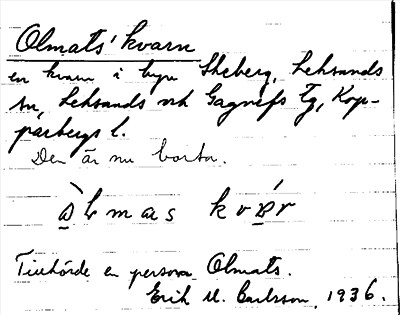 Olmats' kvarn
en kvarn i byn Skeberg, Leksands
sn, Leksands och Gagnefs tg, Kop-
parbergs l.
Den är nu borta.
kvar
Tillhörde en person Olmats.
Erik M. Carlsson, 1936.